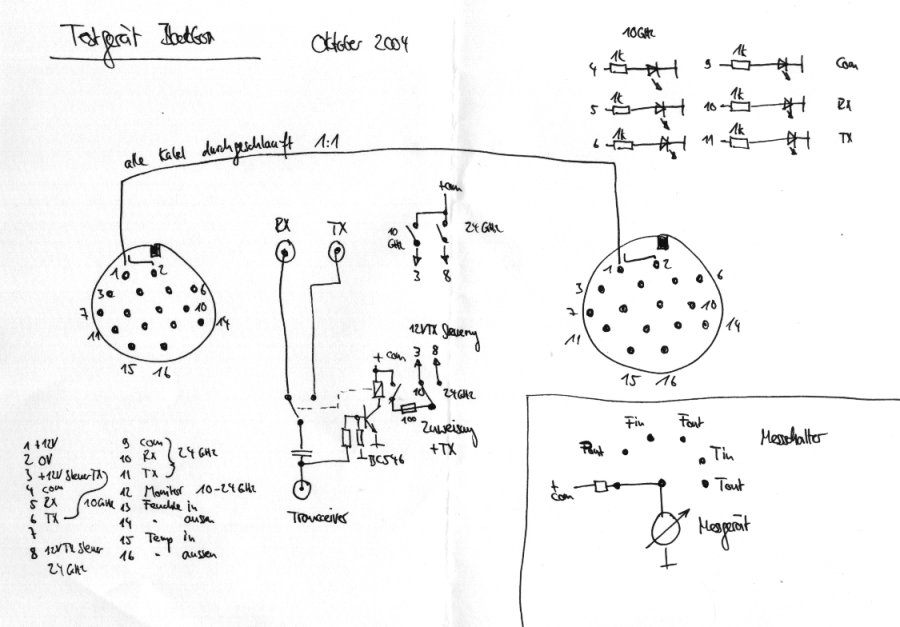 Testgerät
Oktober 2004
10GHz
4 1k
9 1k com
5 1k
10 1k RX
6 1k
11 1k TX
alle Kabel durchgeschlauft 1:1
+com
10 GHz
24 GHz
3 8
RX TX
1 2
3 6
7 10
11 14
15 16
1 2
3 6
7 10
11 14
15 16
12VTX Steuerung
+ com 3 8
10 24GHz
100
Zuweisung
+TX
BC546
Transceiver
1 +12V
2 0V
3 +12V Steuer TX
4 com
5 RX
6 TX
10GHz
7
8 12VTX Steuer
24 GHz
9 com
10 RX
11 TX
24 GHz
12 Monitor 10-24GHz
13 Feuchte in
14 " aussen
15 Temp in
16 " aussen
Messchalter
Pout Fin Fout
Tin
Tout
+
com
Messgerät